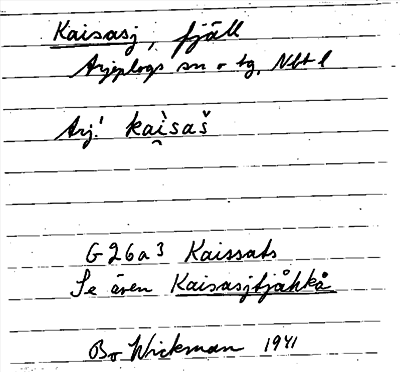 Kaisasj, fjäll
Arjeplogs sn o tg, Nbt l
Arj! kai̯saš
G 26a3 Kaissats
Se även Kaisasjtjåhkå
Bo Wickman 1941